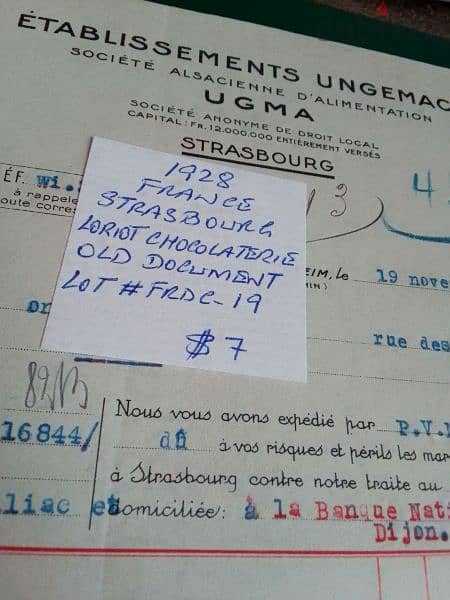 ÉTABLISSEMENTS UNGEMAC
SOCIÉTÉ ALSACIENNE D'ALIMENTATION
UGMA
SOCIÉTÉ ANONYME DE DROIT LOCAL
CAPITAL: FR. 12.000.000 ENTIÈREMENT VERSÉS
STRASBOURG
ÉF. wi.
à rappele
oute corres
3
4
1928
FRANCE
STRASBOURG
LORIOT CHOCOLATERIE
OLD DOCUMENT
LOT # FRDC-19
$ 7
EIM, le 19 nove
rue des
or
Nous vous avons expédié par P.V.
16844/ dû à vos risques et périls les mar
à Strasbourg contre notre traite au
liac et domiciliée: à la Banque Nati
Dijon.